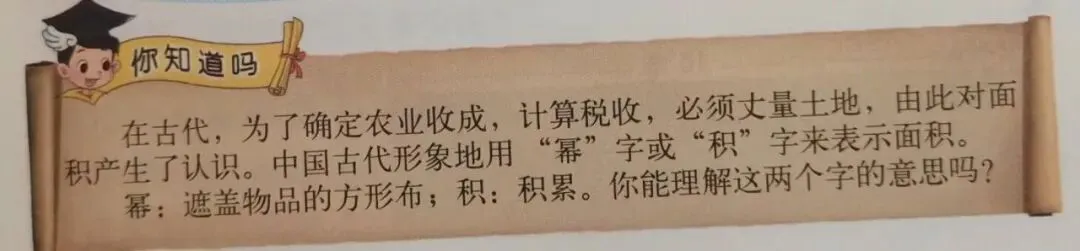 你知道吗
在古代，为了确定农业收成，计算税收，必须丈量土地，由此对面
积产生了认识。中国古代形象地用“幂”字或“积”字来表示面积。
幂：遮盖物品的方形布；积：积累。你能理解这两个字的意思吗？